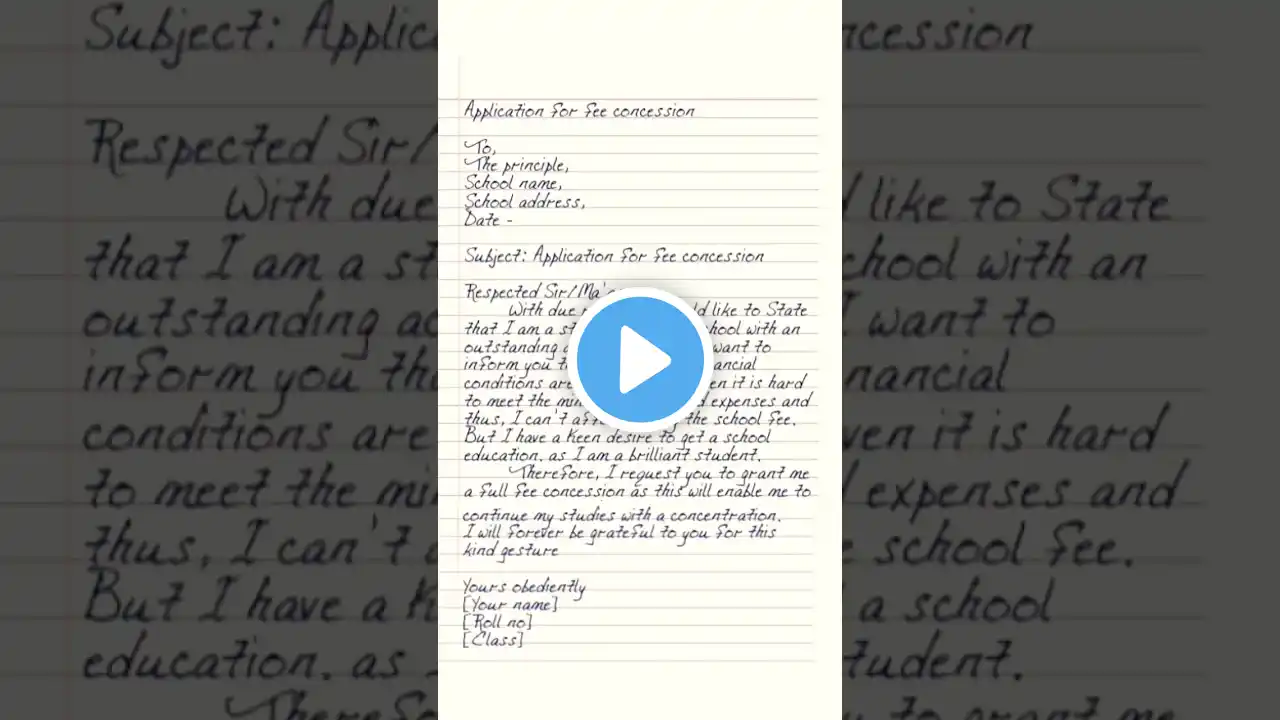 Application for fee concession
To,
The principle,
School name,
School address,
Date -
Subject: Application for fee concession
Respected Sir/
With due like to State
that I am a school with an
outstanding want to
inform you
conditions are en it is hard
to meet the expenses and
thus, I can't the school fee.
But I have a keen desire to get a school
education. as I am a brilliant student.
Therefore, I request you to grant me
a full fee concession as this will enable me to
continue my studies with a concentration.
I will forever be grateful to you for this
kind gesture
Yours obediently
[Your name]
[Roll no]
[Class]